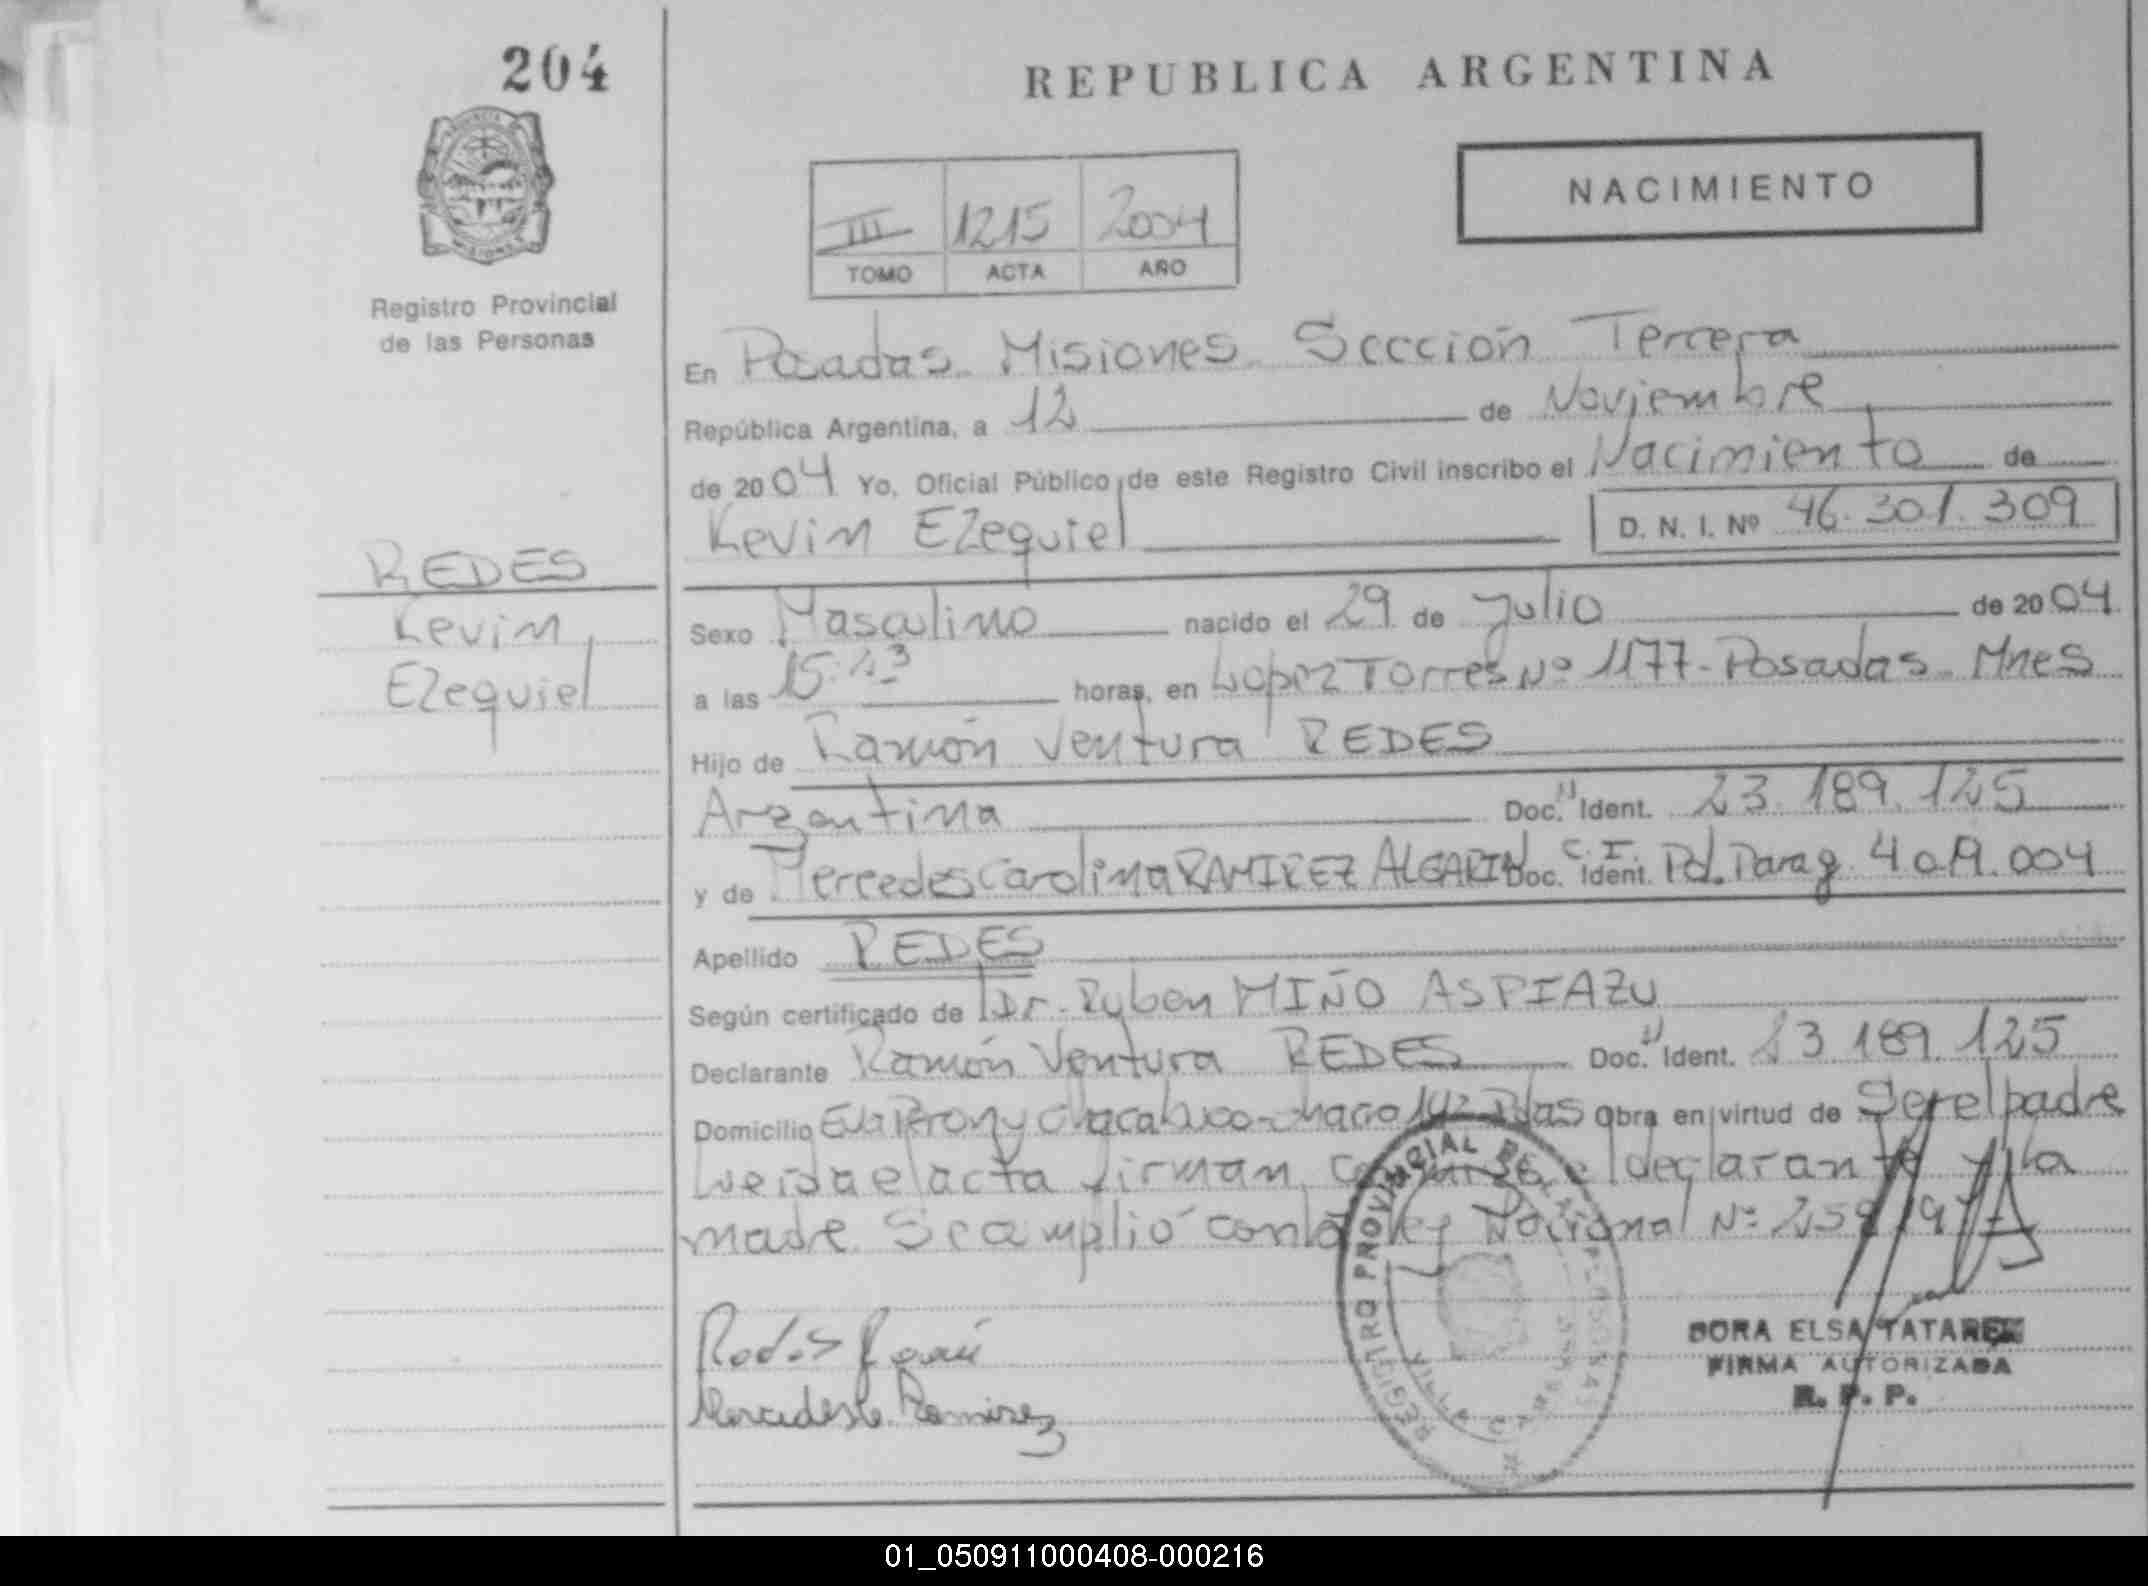 204
REPUBLICA ARGENTINA
NACIMIENTO
III 1215 2004
TOMO ACTA AÑO
PROVINCIA
MISIONES
Registro Provincial
de las Personas
En Posadas. Misiones. Sección Tercera
República Argentina, a 12 de Noviembre
de 2004 Yo, Oficial Público de este Registro Civil inscribo el Nacimiento de
Kevin Ezequiel D. N. I. Nº 46.301.309
REDES
Kevin
Ezequiel
Sexo Masculino nacido el 29 de Julio de 2004
a las 15:43 horas, en Lopez Torres Nº 1177-Posadas. Mnes
Hijo de Ramón Ventura REDES
Argentina Doc. Ident. 23.189.125
y de Mercedes Carolina RAMIREZ ALGARIN Doc. C.I. Ident. Pol. Parag. 4.019.004
Apellido REDES
Según certificado de Dr. Ruben MIÑO ASPIAZU
Declarante Ramón Ventura REDES Doc. Ident. 23.189.125
Domicilio Eva Peron y Chacabuco-chacra 142 Pdas Obra en virtud de Ser el padre
Leida el acta firman conmigo el declarante y la
madre. Se amplió con la ley Nacional Nº
Mercedes Ramirez
REGISTRO PROVINCIAL DE LAS PERSONAS
DORA ELSA TATAREN
FIRMA AUTORIZADA
R. P. P.
01_050911000408-000216